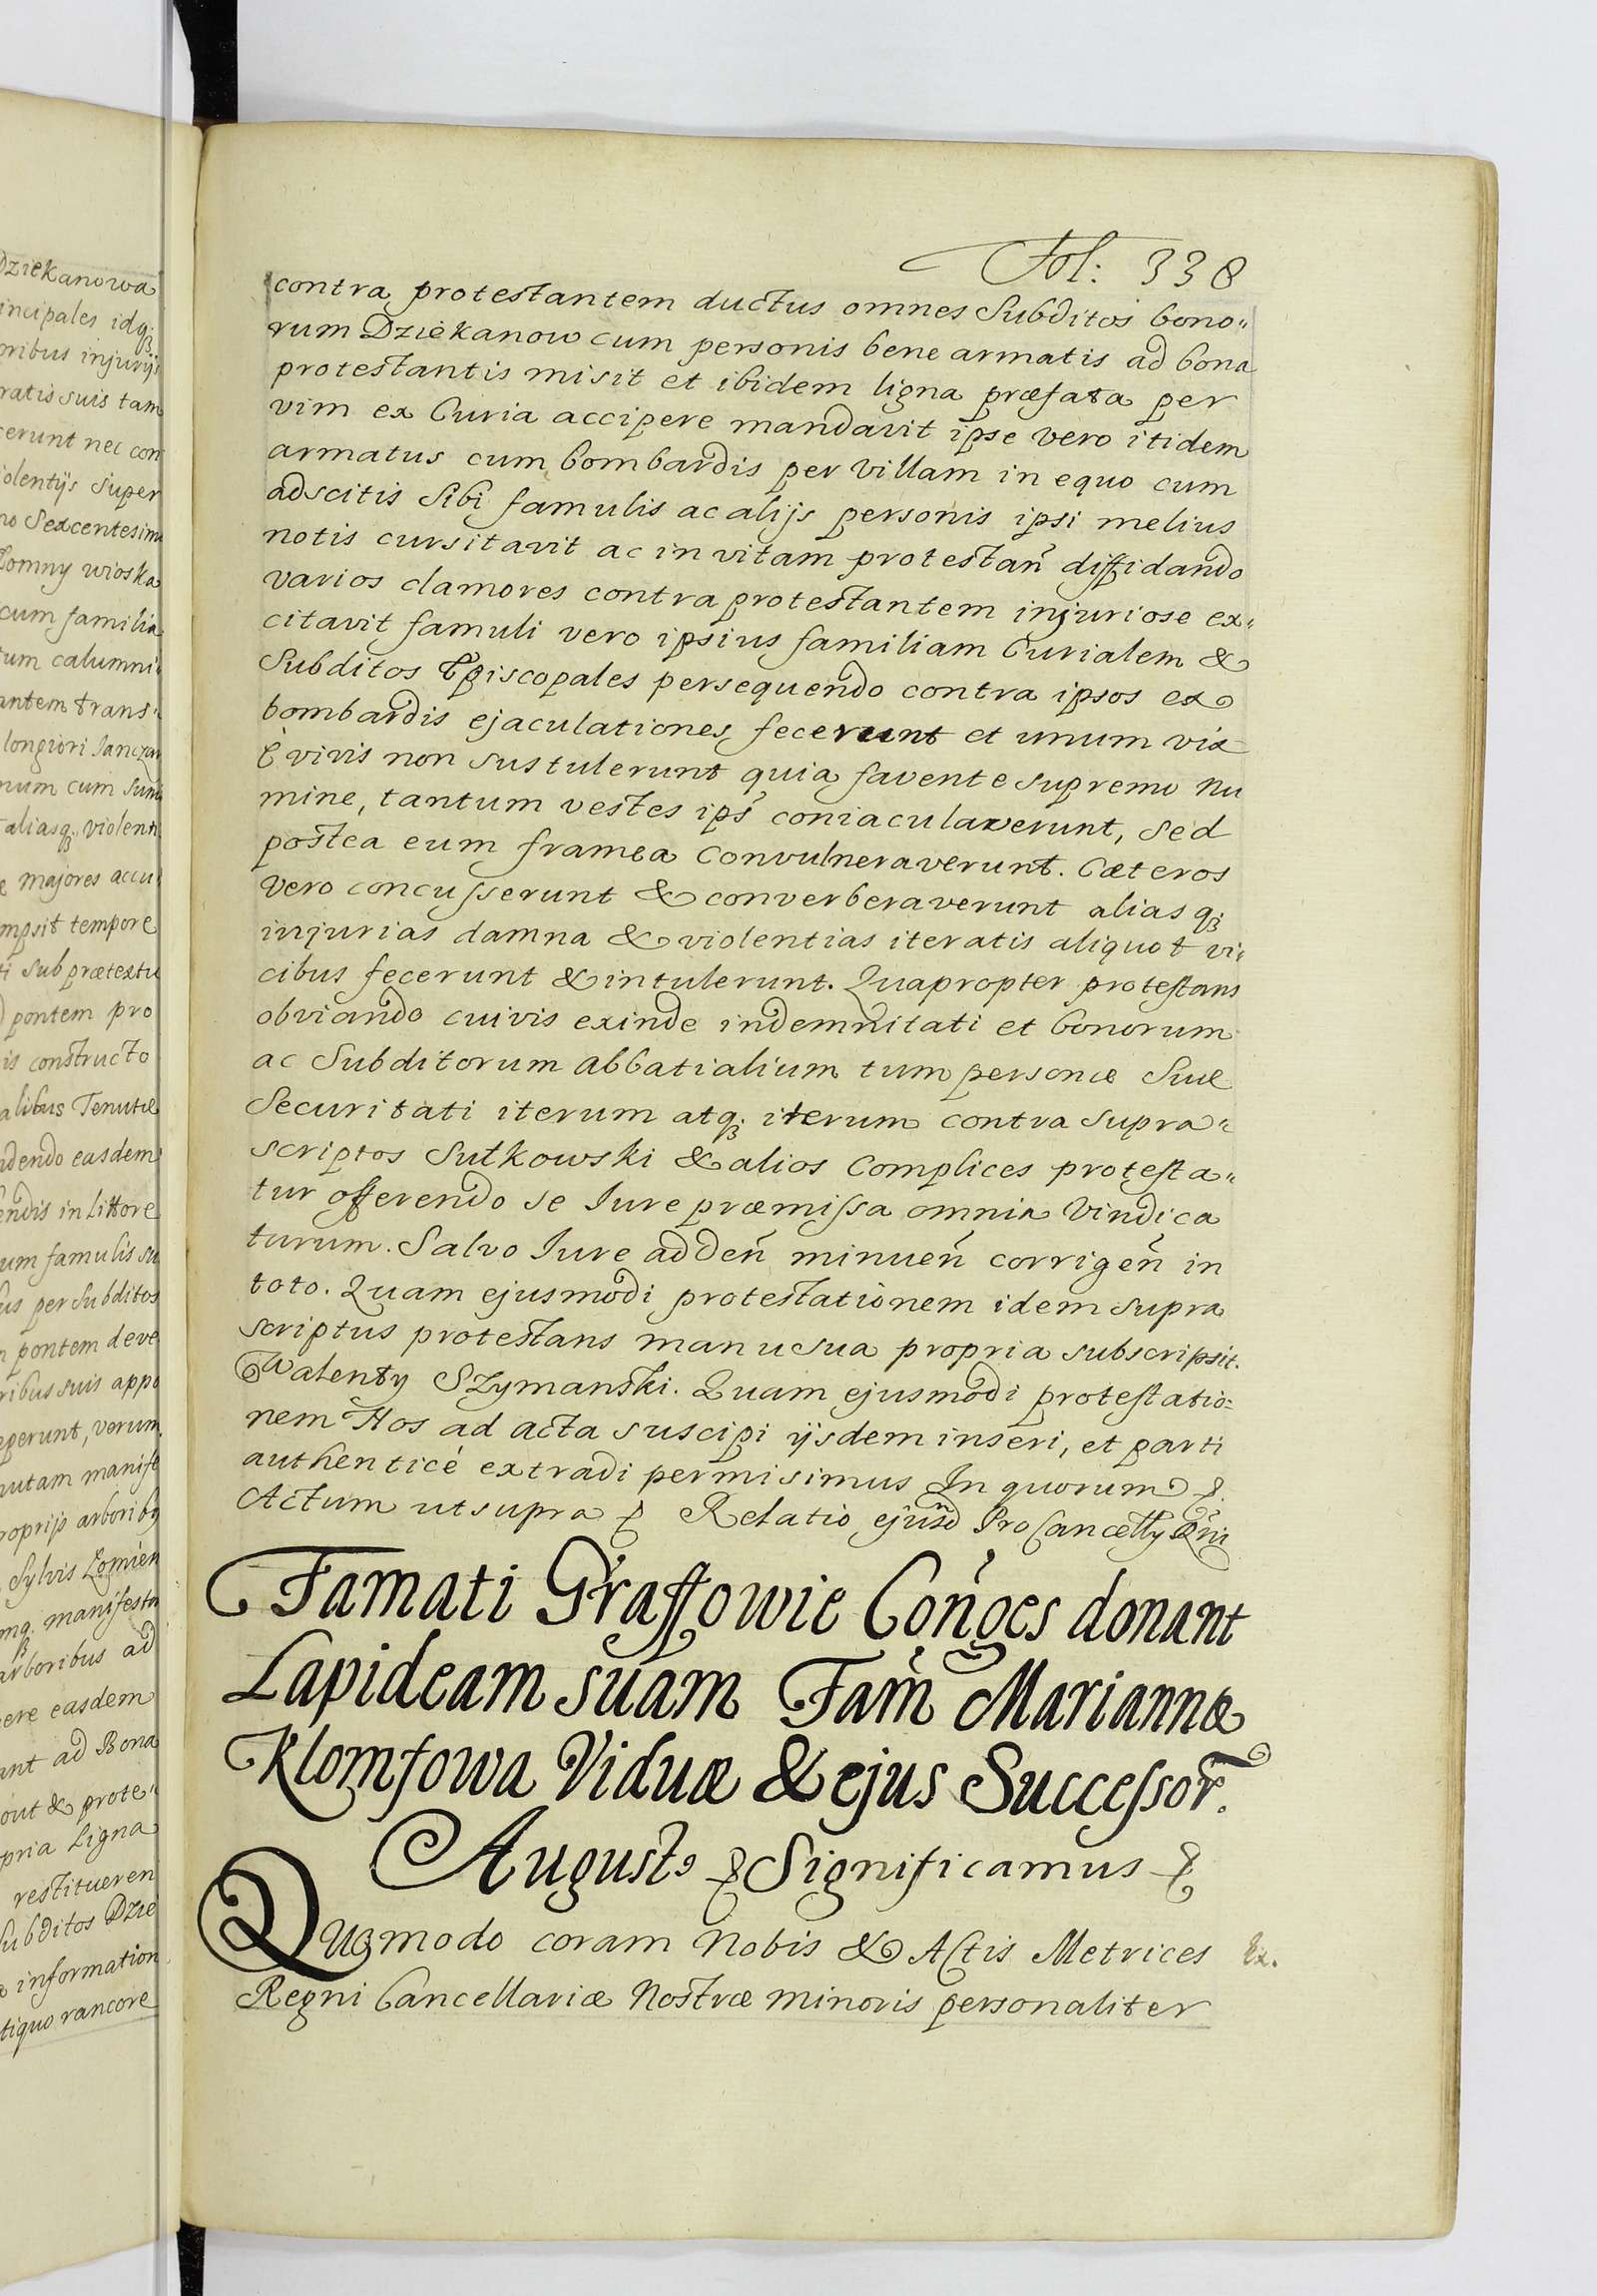 Dziekanowa
incipales idq;
oribus injurijs
ratis suis tam
cerunt nec con
iolentijs super
no Sexcentesimo
Łomny wioska
cum familia
tum calumni
antem trans
longiori Janczar
num cum
aliasq; violenti
e majores accu
mpsit tempore
ti sub prætextu
pontem pro
is constructo
alibus Tenutæ
ndendo easdem
endis in littore
um famulis su
us per Subditos
n pontem deve
ribus suis appo
eperunt, verum
nutam manife
roprijs arboribq
Sylvis Łomien
mq; manifesta
arboribus ad
ere easdem
ant ad Bona
out & prote"
pria Ligna
restitueren
Subditos Dzie
information
tiquo rancore
Fol: 338
contra protestantem ductus omnes Subditos bono"
rum Dziekanow cum personis bene armatis ad bona
protestantis misit et ibidem ligna præfata per
vim ex Curia accipere mandavit ipse vero itidem
armatus cum bombardis per Villam in equo cum
adscitis Sibi famulis ac alijs personis ipsi melius
notis cursitavit ac in vitam protestan̄ diffidando
varios clamores contra protestantem injuriose ex"
citavit famuli vero ipsius familiam Curialem &
Subditos Episcopales persequendo contra ipsos ex
bombardis ejaculationes fecerunt et unum vix
è vivis non sustulerunt quia favente supremo Nu
mine, tantum vestes ips̄ coniacularerunt, sed
postea eum framea Convulneraverunt. Cæteros
vero concusserunt & converberaverunt aliasq;
injurias damna & violentias iteratis aliquot vi"
cibus fecerunt & intulerunt. Quapropter protestans
obviando cuivis exinde indemnitati et bonorum
ac Subditorum Abbatialium tum personæ Suæ
Securitati iterum atq; iterum contra supra"
scriptos Sułkowski & alios Complices protesta"
tur offerendo se Iure præmissa omnia Vindica
turum. Salvo Iure adden̄ minuen̄ corrigen̄ in
toto. Quam ejusmodi protestationem idem supra
scriptus protestans manu sua propria subscripsit.
Walenty Szymanski. Quam ejusmodi protestatio=
nem Nos ad acta suscipi ijsdem inseri, et parti
authenticé extradi permisimus In quorum &.
Actum ut supra & Relatio ejusd̄ ProCancellȳ Rn̄i
Famati Graffowie Con̄ges donant
Lapideam suam Fam̄ Mariannæ
Klomfowa Viduæ & ejus Successor̄.
August9 & Significamus &
Quomodo coram Nobis & Actis Metrices
Regni Cancellariæ Nostræ minoris personaliter
Ex.